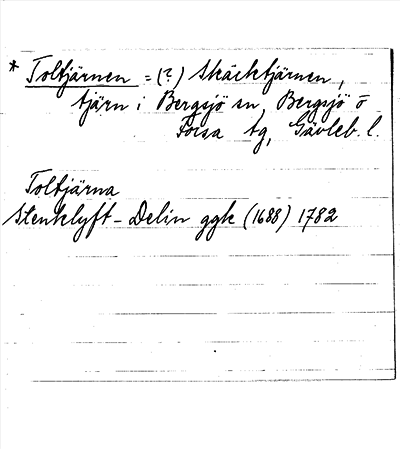 * Toltjärnen = (?) Skäcktjärnen,
tjärn i Bergsjö sn, Bergsjö o
Forsa tg, Gävleb. l.
Toltjärna
Stenklyft - Delin ggk (1688) 1782